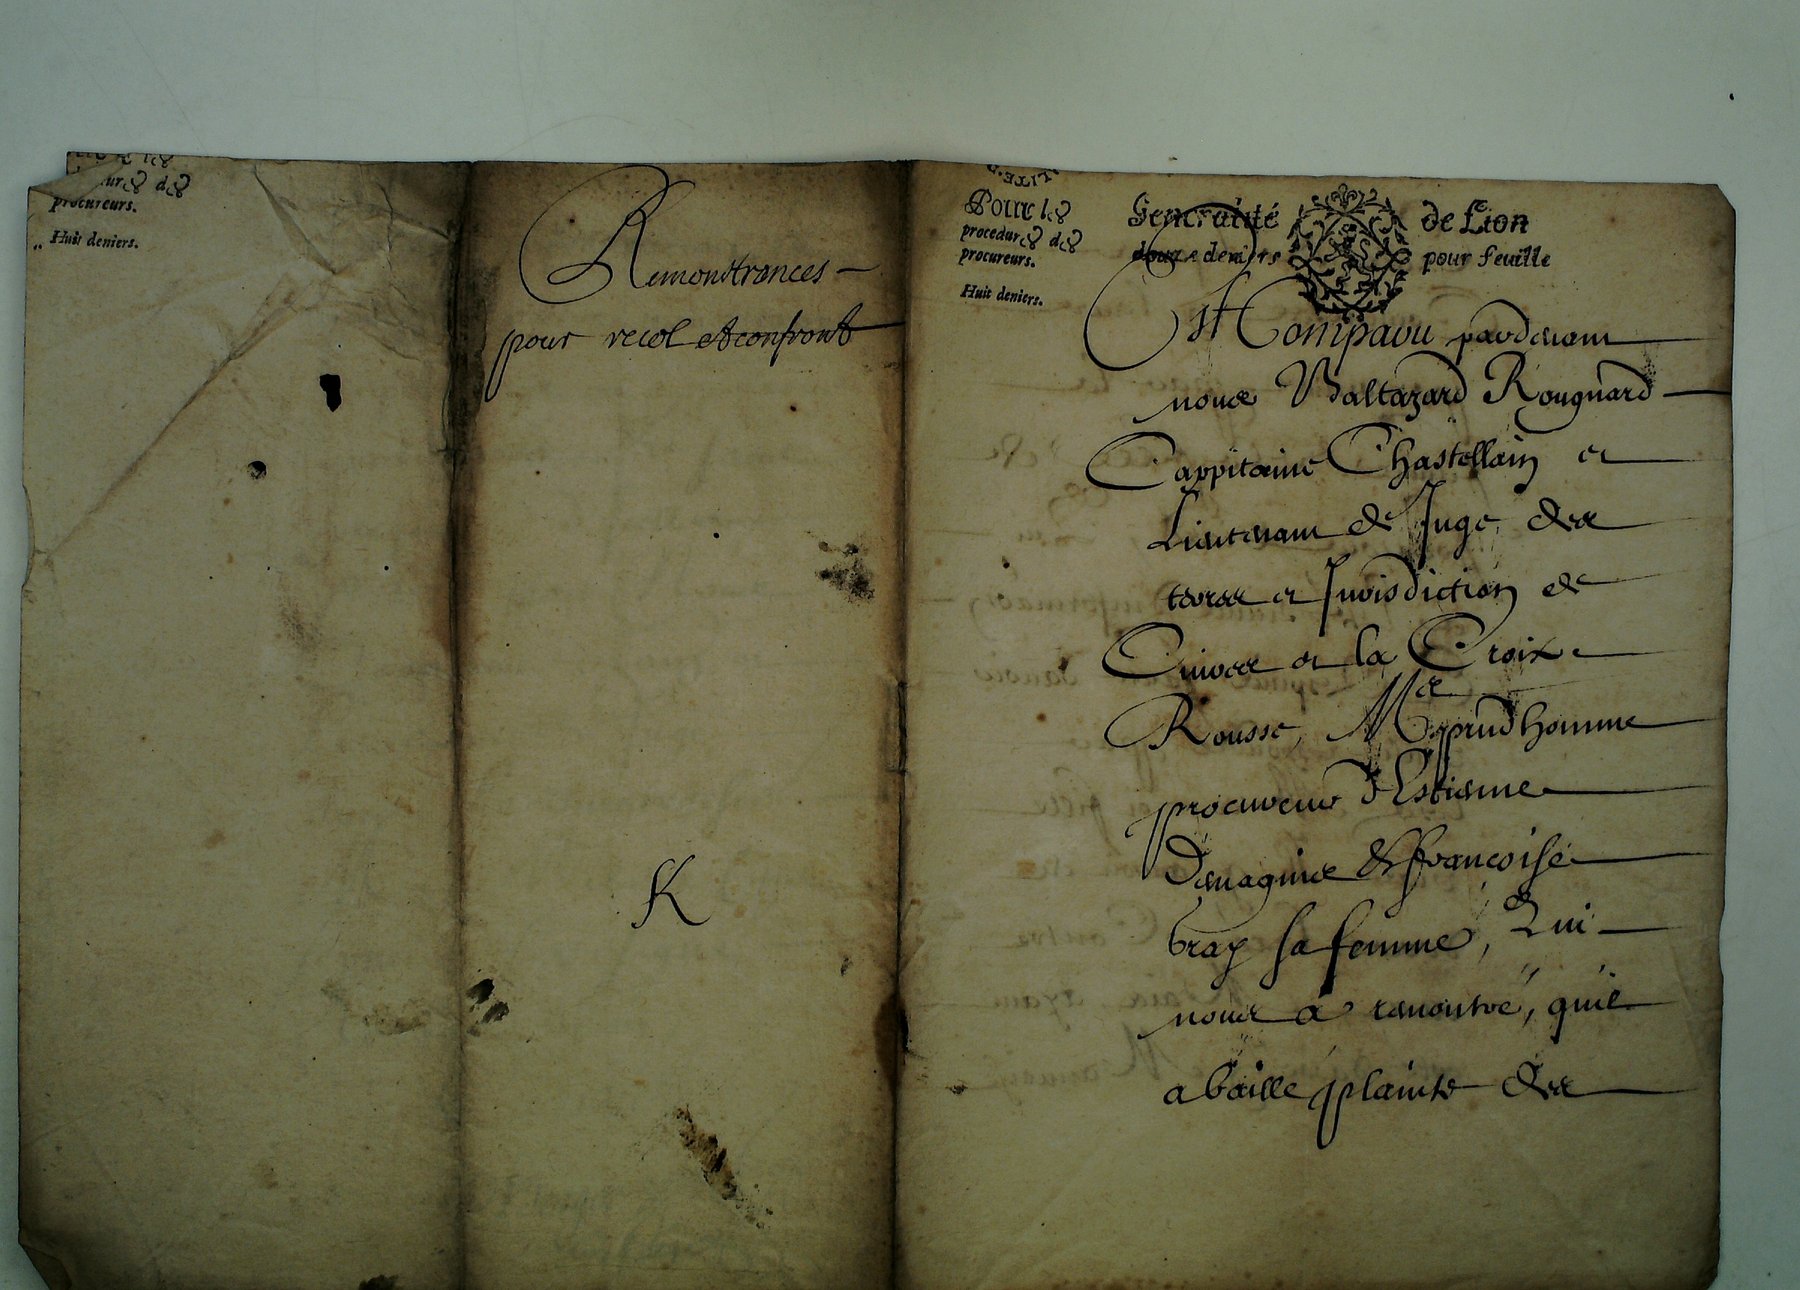 procureurs.
Huit deniers.
Remonstrances
pour recol et confront
K
Pour les
procedures des
procureurs.
Huit deniers.
Generalité de Lion
douze deniers pour feuille
Est Comparu pardevant
nous Baltazard Rougnard
Cappitaine Chastellain et
Lieutenant de Juge des
terres et Jurisdiction de
Cuires et la Croix
Rousse, Me prudhomme
procureur d'Estienne
& francoise
bray sa femme, Qui
nous a remontré, quil
a baille plainte des